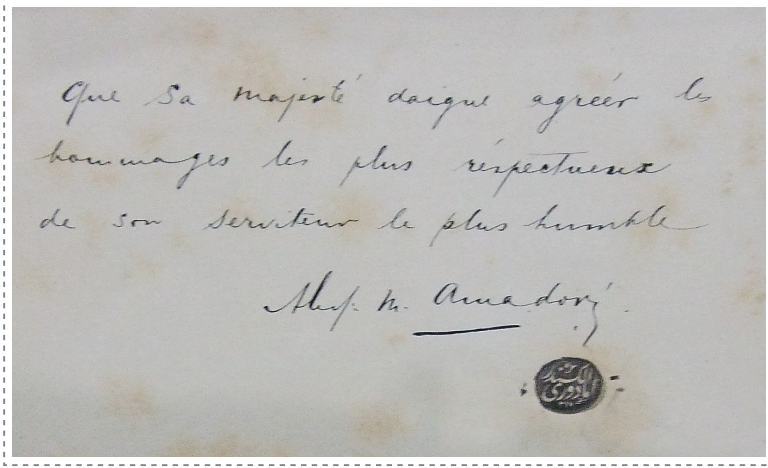 Que Sa majesté daigne agréer les
hommages les plus réspectueux
de son serviteur le plus humble
Alex. M. Amadori
الكسندر
امادوری